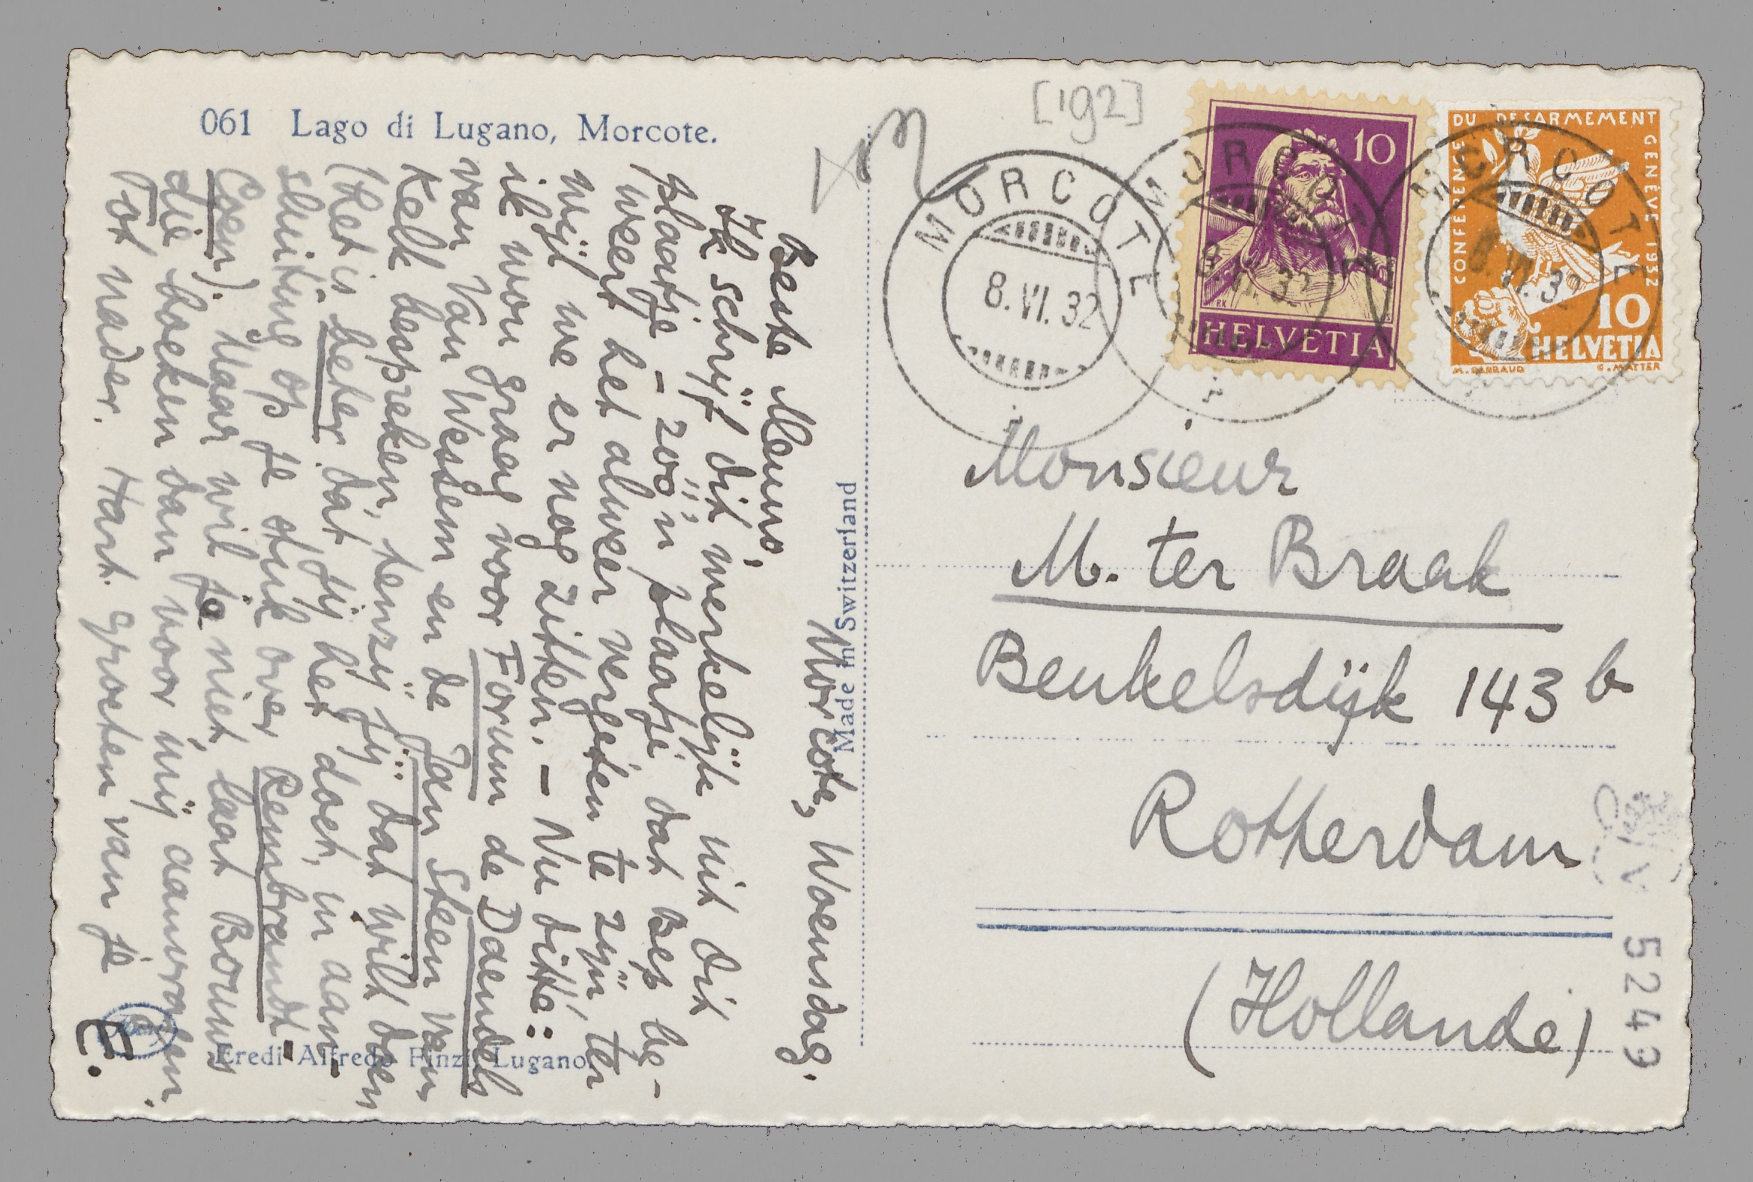 061 Lago di Lugano, Morcote.
Morcote, Woensdag.
Beste Menno,
Ik schrijf dit werkelijk uit dit
plaatje – zóó'n plaatje dat Bep be-
weert het alweer vergeten te zijn ter-
wijl we er nog zitten. – Nu ditte:
ik wou graag voor Forum de Daendels
van Van Wessem en de Jan Steen van
Kelk bespreken, tenzij jij dat wilt doen
(het is beter dat jij het doet, in aan-
sluiting op je stuk over Rembrandt-
Coen). Maar wil je niet, laat Bouws
die boeken dan voor mij aanvragen.
Tot nader. Hart. groeten van je
E.
Eredi Alfredo Finzi, Lugano
Made in Switzerland
[192]
MORCOTE
8.VI.32
MORCOTE
8.VI.32
MORCOTE
8.VI.32
10
HELVETIA
CONFERENCE DU DESARMEMENT GENEVE 1932
10
HELVETIA
M. BARRAUD G. MATTER
Monsieur
M. ter Braak
Beukelsdijk 143 b
Rotterdam
(Hollande)
V 5249